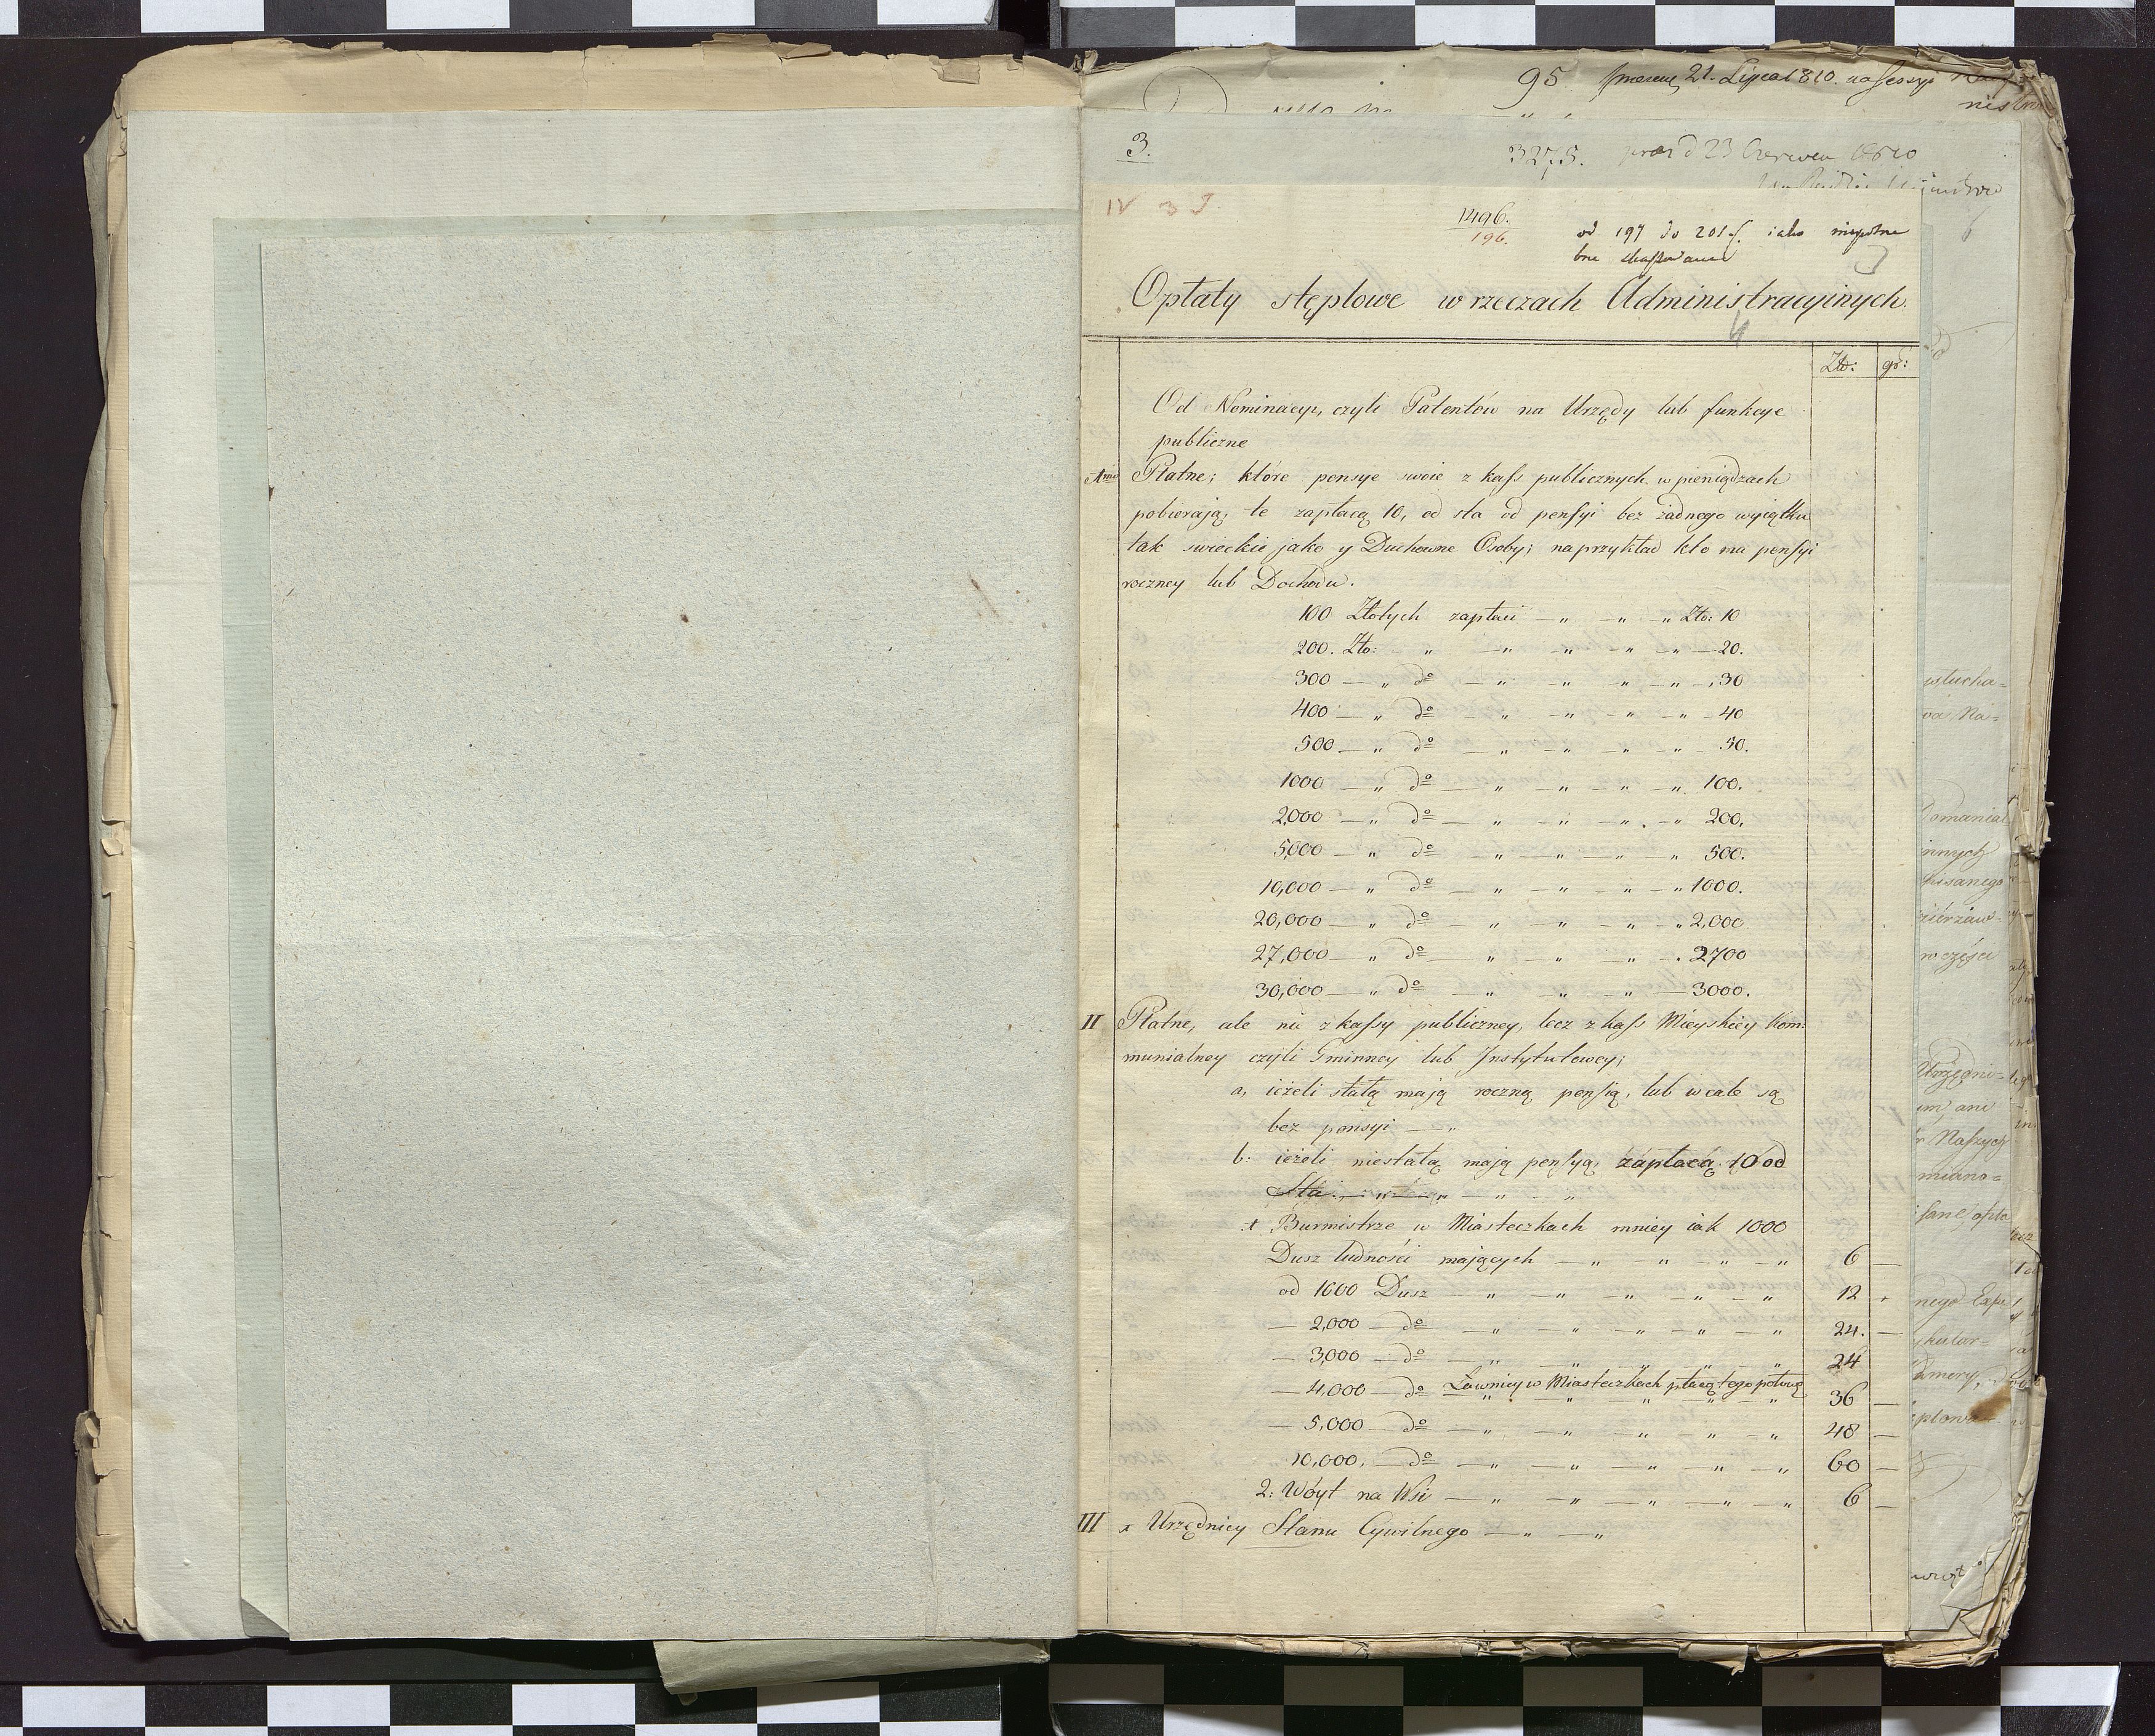 95 21. Lipca 1810. na Sessyi
3.
3275. d 23 Czerwca 1810
IV 3
1496.
196.
od 197 do 201 iako niepotrze
bne skassowane
Opłaty stęplowe w rzeczach Administracyinych.
Zło: gr:
Od Nominacyi, czyli Patentów na Urzędy lub funkcye
publiczne
Imo Płatne; które pensye swoie z kass publicznych w pieniądzach
pobierają, te zapłacą 10, od sta od pensyi bez żadnego wyiątku
tak swieckie jako y Duchowne Osoby; naprzykład kto ma pensyi
roczney lub Dochodu.
100 Złotych zapłaci — „ — „ — „ Zło: 10
200. Zło: „ — „ — „ — „ — „ — 20.
300 — „ do — „ — „ — „ — „ — 30
400 — „ do — „ — „ — „ — „ — 40
500 — „ do — „ — „ — „ — „ — 50.
1000 — „ do — „ — „ — „ — „ 100.
2,000 — „ do — „ — „ — „ — „ 200.
5,000 — „ do — „ — „ — „ — „ 500.
10,000 — „ do — „ — „ — „ — „ 1000.
20,000 — „ do — „ — „ — „ — „ 2,000
27,000 — „ do — „ — „ — „ — „ 2700
30,000 — „ do — „ — „ — „ — 3000.
II Płatne, ale nie z kassy publiczney, lecz z kass Mieyskiey Kom=
munialney czyli Gminney lub Instytutowey;
a, ieżeli stałą mają roczną pensią, lub wcale są
bez pensyi — „
b: ieżeli niestałą mają pensyą, zapłacą 10 od
Sta — „ — „ — „ — „
Burmistrze w Miasteczkach mniey iak 1000
Dusz ludności mających — „ — „ — „ — „ 6 —
od 1000 Dusz — „ — „ — „ — „ — „ 12
— 2,000 — do — „ — „ — „ — „ — „ 24. —
— 3,000 — do — „ — „ — „ — „ — „ 24
Ławnicy w Miasteczkach płacą tego połowę
— 4,000 — do — „ — „ — „ — „ — „ 36 —
— 5,000 — do — „ — „ — „ — „ — „ 48 —
10,000. — do — „ — „ — „ — „ — „ 60 —
2: Wóyt na Wsi — „ — „ — „ — „ — „ 6 —
III Urzędnicy Stanu Cywilnego — „ — „
wślucha=
Na=
innych
pisanego
w części
im, ani
Naszych
miano=
nego